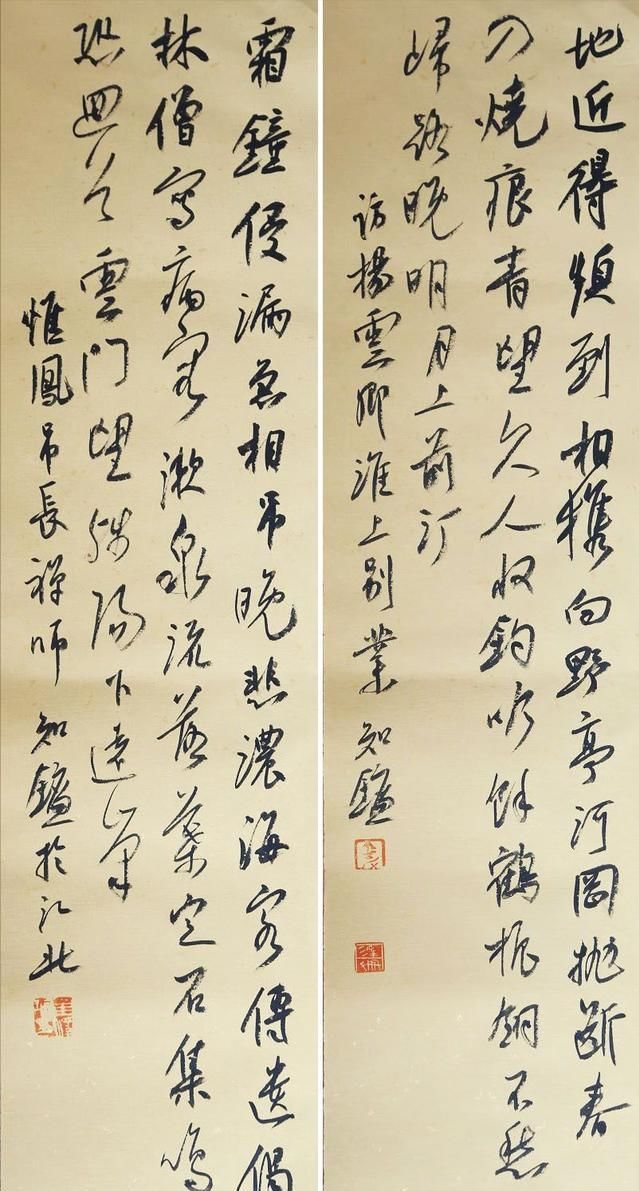 地近得頻到相携向野亭河岡勢斷春
入燒痕青望久人收釣吟餘鶴振翎不愁
歸路晚明月上前汀
訪楊雲卿淮上別業 知
霜鐘侵漏急相吊晚悲濃海客傳遺偈
林僧寫病容漱泉流落葉定石集鳴
蛩迴首雲門望殘陽下遠峰
惟鳳吊長禪師 知 於江北